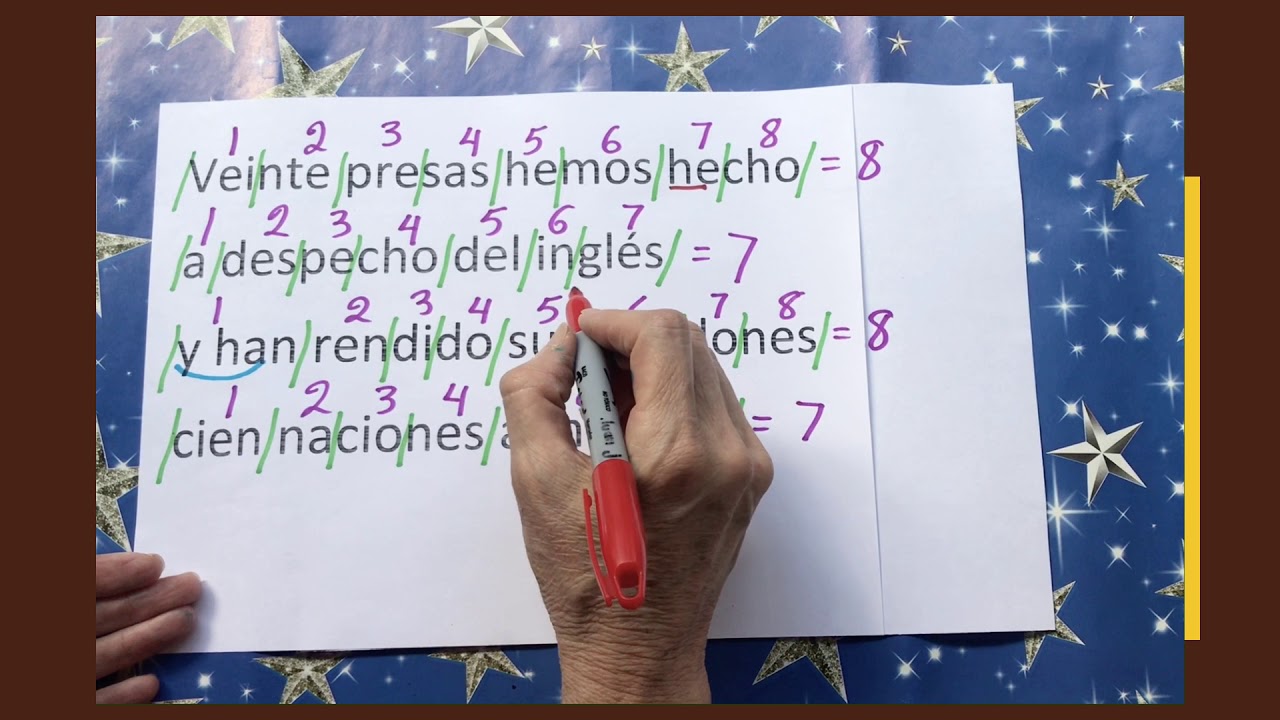 1 2 3 4 5 6 7 8
Veinte presas hemos hecho = 8
1 2 3 4 5 6 7
a despecho del inglés = 7
1 2 3 4 5 6 7 8
y han rendido = 8
1 2 3 4
cien naciones = 7